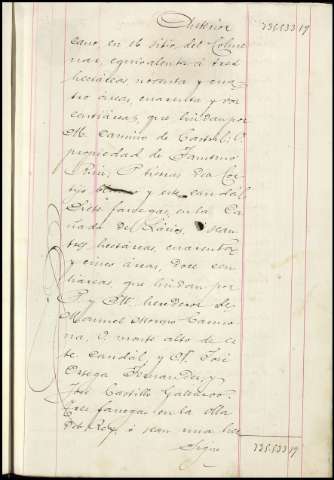 Anterior 735533 19
cano, en 16 sitio del Colme
nar, equivalente á tres
hectáreas, noventa y cua
tro áreas, cuarenta y dos
centiáreas, que lindan por
N. camino de Castril, O.
propiedad de Faustino
Ruiz, P. tierras del Cor
tijo y este caudal
Siete fanegas, en la Ca
ñada del ó sean
tres hectáreas, cuarenta
y cinco áreas, doce cen
tiáreas, que lindan por
P. y M. herederos de
Manuel Moreno Carmo
na, O. monte alto de es
te caudal, y N. José
Ortega Fernandez y
José Castillo Gallardo.
Tres fanegas en la
del Rey, ó sean una hec
Sigue 735533 19